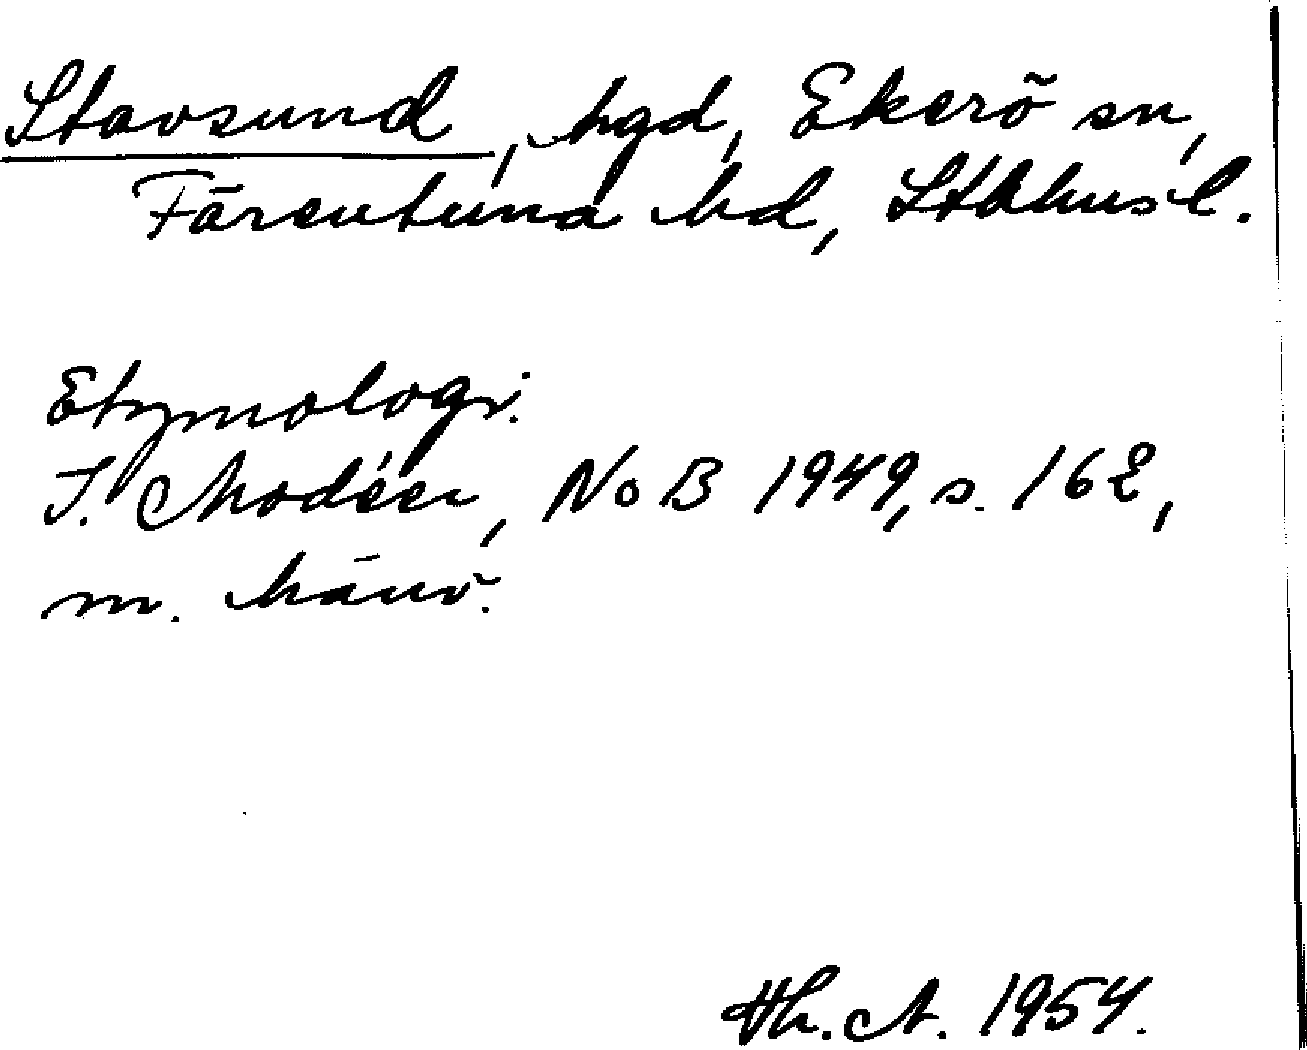 Stavsund, hgd, Ekerö sn,
Färentuna hd, Sthlms l.
Etymologi.
I. Modéer, NoB 1949, s. 162,
m. hänv.
Th. A. 1954.